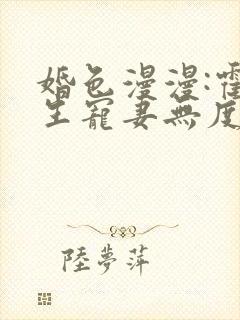 婚色漫漫:霍
生寵妻無度
陸夢萍